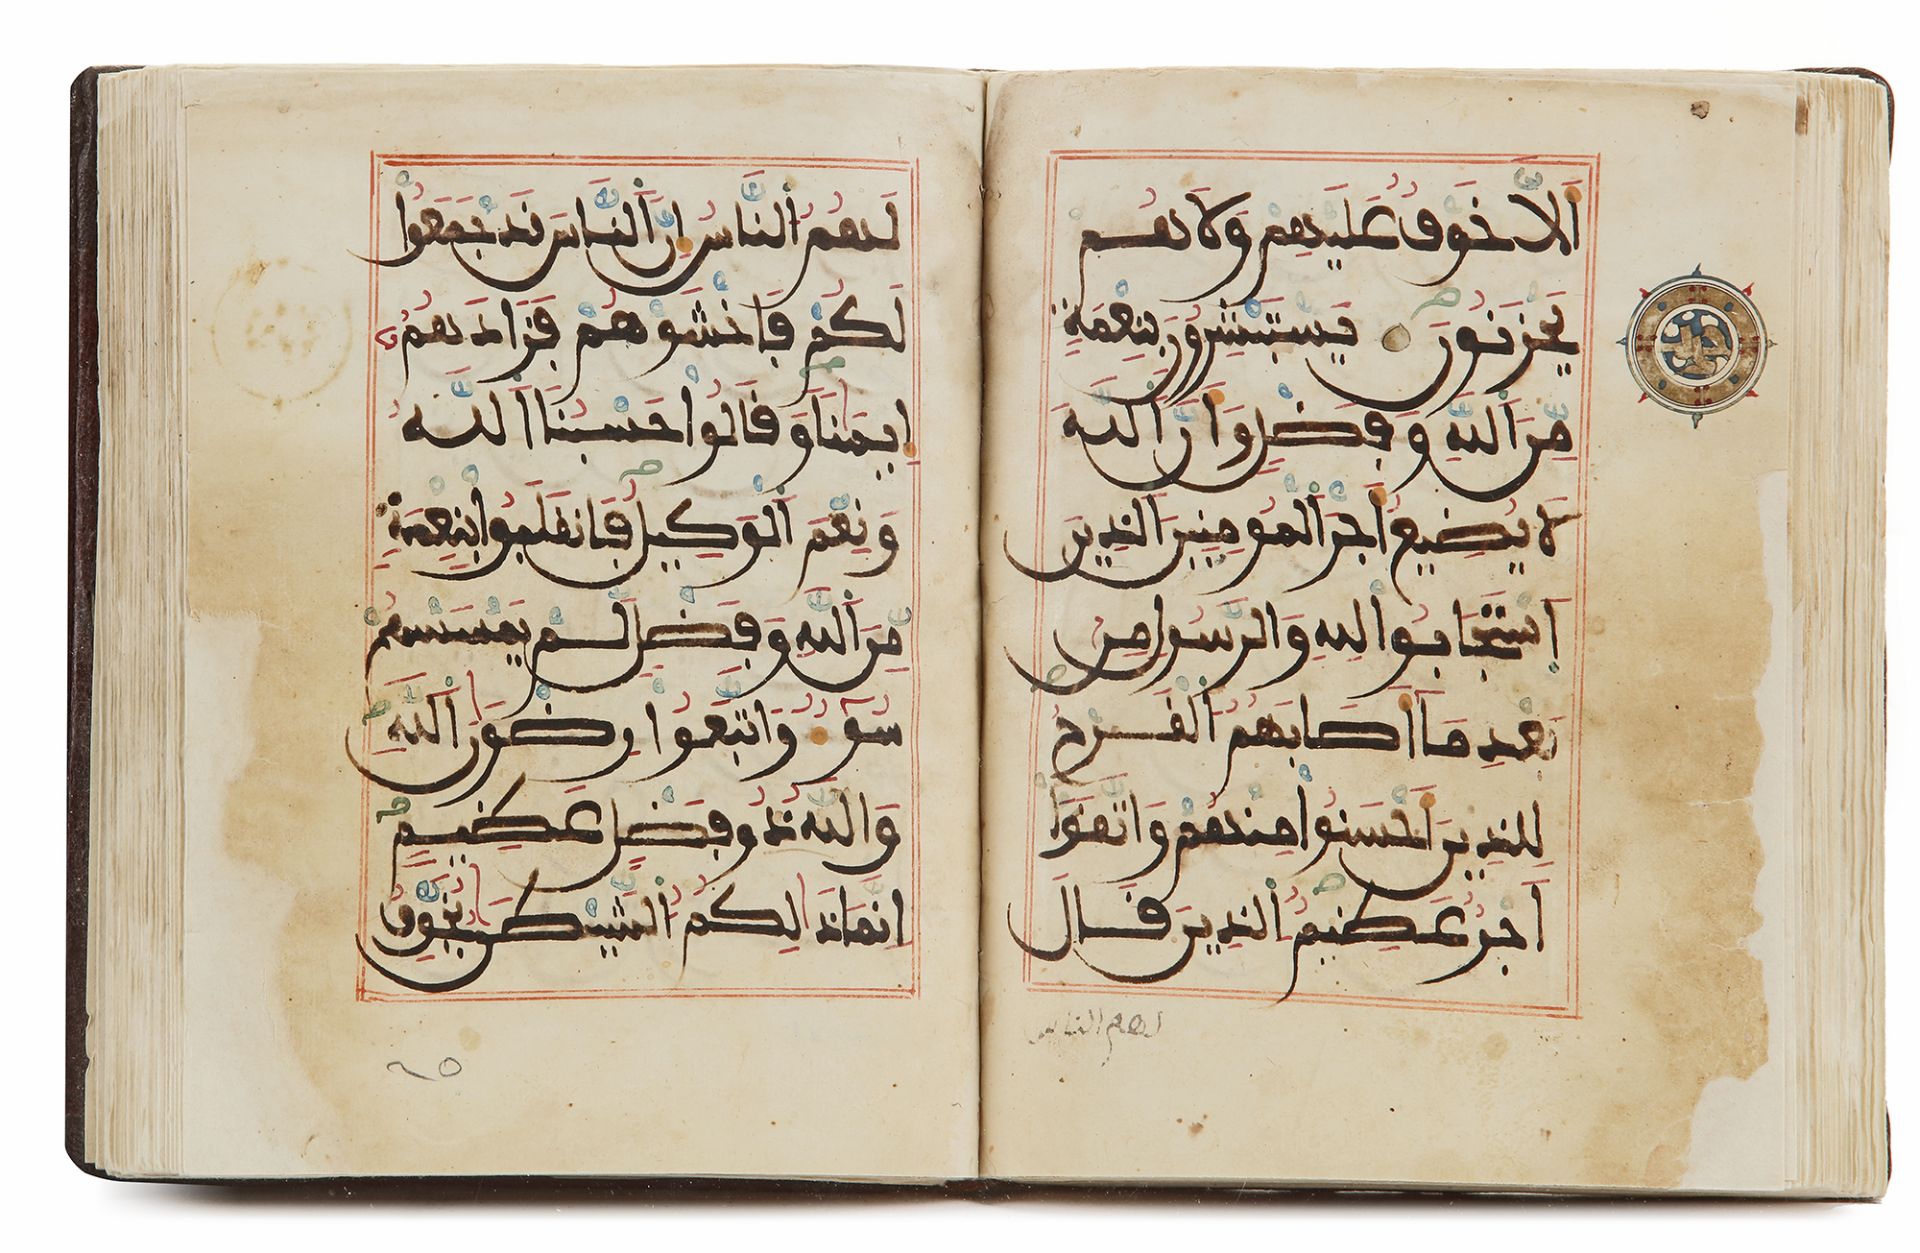 أَلَّا خَوْفٌ عَلَيْهِمْ وَلَا هُمْ
يَحْزَنُونَ يَسْتَبْشِرُونَ بِنِعْمَةٍ
مِّنَ ٱللَّهِ وَفَضْلٍ وَأَنَّ ٱللَّهَ
لَا يُضِيعُ أَجْرَ ٱلْمُومِنِينَ ٱلَّذِينَ
ٱسْتَجَابُوا لِلَّهِ وَٱلرَّسُولِ مِنۢ
بَعْدِ مَا أَصَابَهُمُ ٱلْقَرْحُ
لِلَّذِينَ أَحْسَنُوا مِنْهُمْ وَٱتَّقَوْا
أَجْرٌ عَظِيمٌ ٱلَّذِينَ قَالَ
لهم الناس
لَهُمُ ٱلنَّاسُ إِنَّ ٱلنَّاسَ قَدْ جَمَعُوا
لَكُمْ فَٱخْشَوْهُمْ فَزَادَهُمُ
إِيمَٰنًا وَقَالُوا حَسْبُنَا ٱللَّهُ
وَنِعْمَ ٱلْوَكِيلُ فَٱنقَلَبُوا بِنِعْمَةٍ
مِّنَ ٱللَّهِ وَفَضْلٍ لَّمْ يَمْسَسْهُمْ
سُوءٌ وَٱتَّبَعُوا رِضْوَٰنَ ٱللَّهِ
وَٱللَّهُ ذُو فَضْلٍ عَظِيمٍ
إِنَّمَا ذَٰلِكُمُ ٱلشَّيْطَٰنُ يُخَوِّفُ